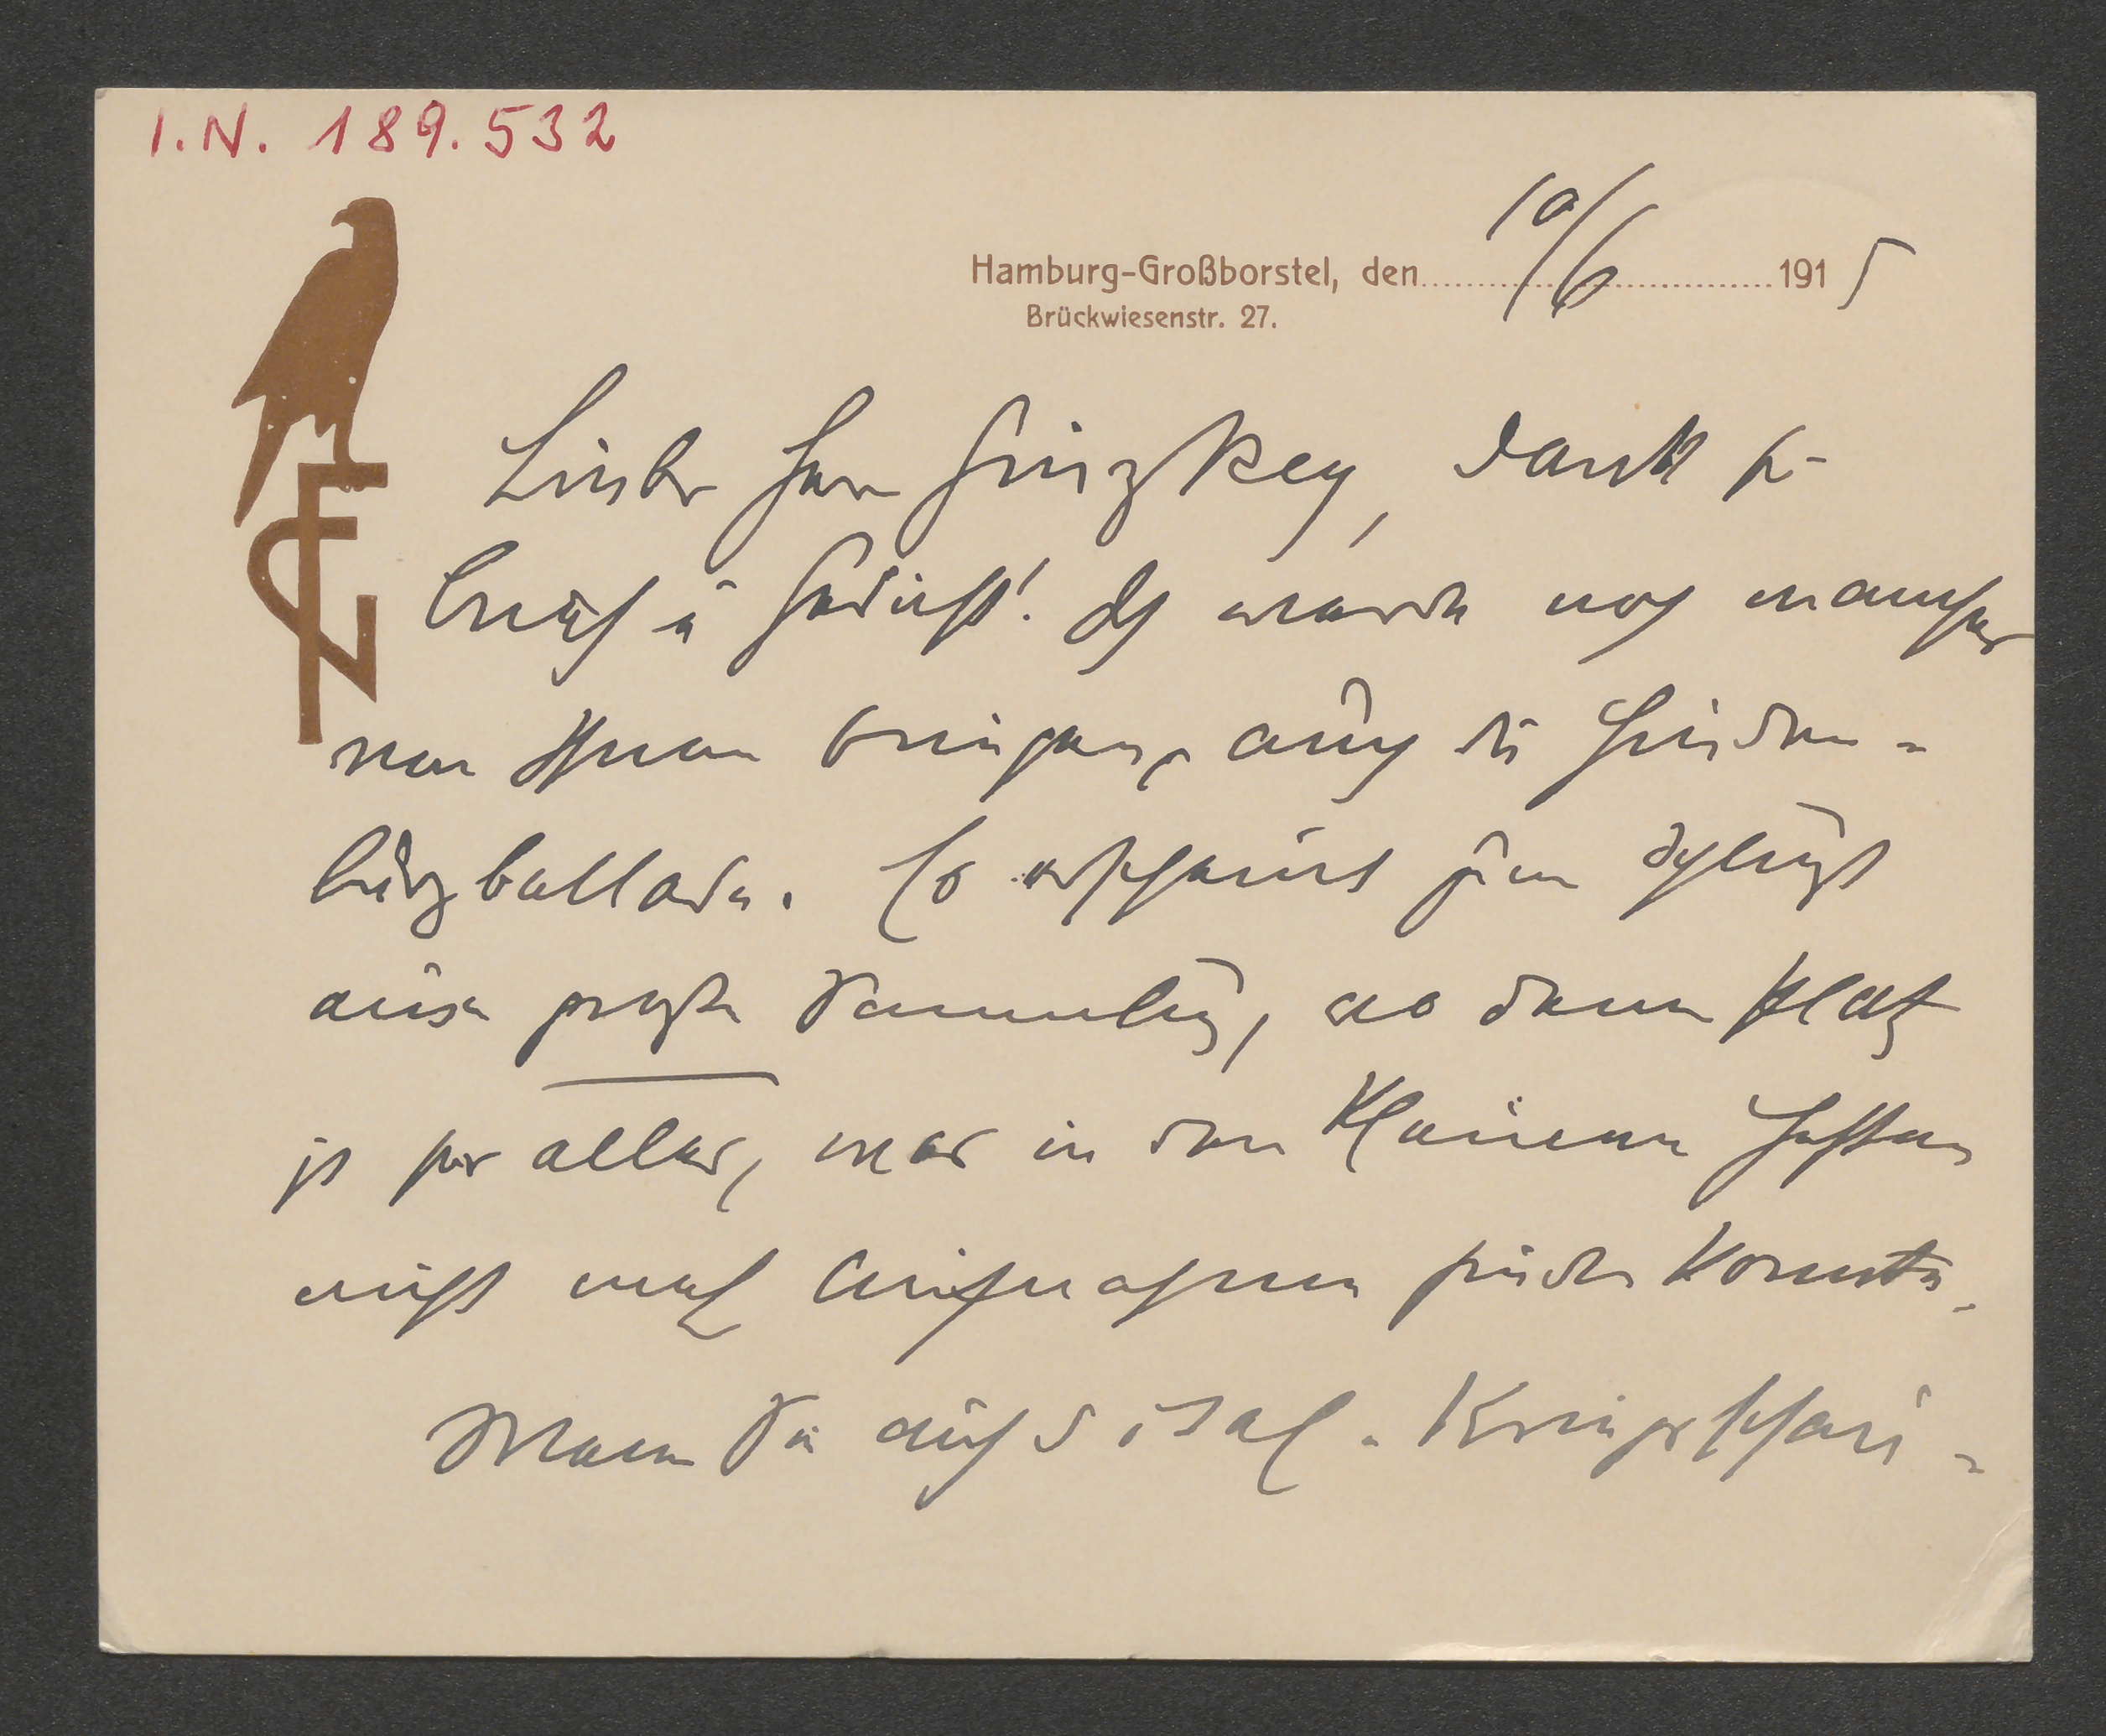 I.N. 189.532
Hamburg-Großborstel, den 10/6 1915
Brückwiesenstr. 27.
Lieber Herr Ginzkey, Dank f.
Brief u Gedicht! Ich werde noch manches
von Ihnen bringen, auch die Hinden-
burgballade. Es erscheint
eine große Sammlung, wo dann Platz
ist für alles, was in den kleinen Heften
nicht mehr Aufnahme finden konnte.
Wenn Sie auch d ideal. Kriegs